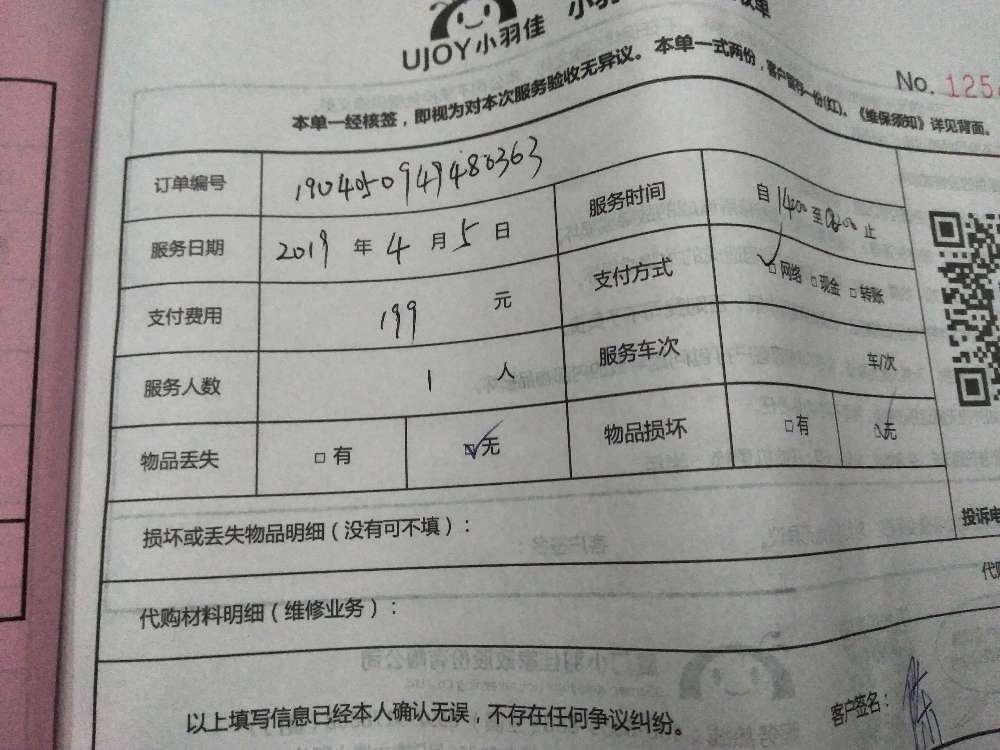 UJOY小羽佳
No.125
本单一经核签，即视为对本次服务验收无异议。本单一式两份，客户留存一份(红)。《维保须知》详见背面。
订单编号 1904050949480363
服务日期 2019 年 4 月 5 日 服务时间 自 1400 至 止
支付费用 199 元 支付方式 ☑网络 □现金 □转账
服务人数 1 人 服务车次 车/次
物品丢失 □有 ☑无 物品损坏 □有 ☑无
损坏或丢失物品明细（没有可不填）：
投诉电
代购材料明细（维修业务）：
代购
以上填写信息已经本人确认无误，不存在任何争议纠纷。
客户签名：